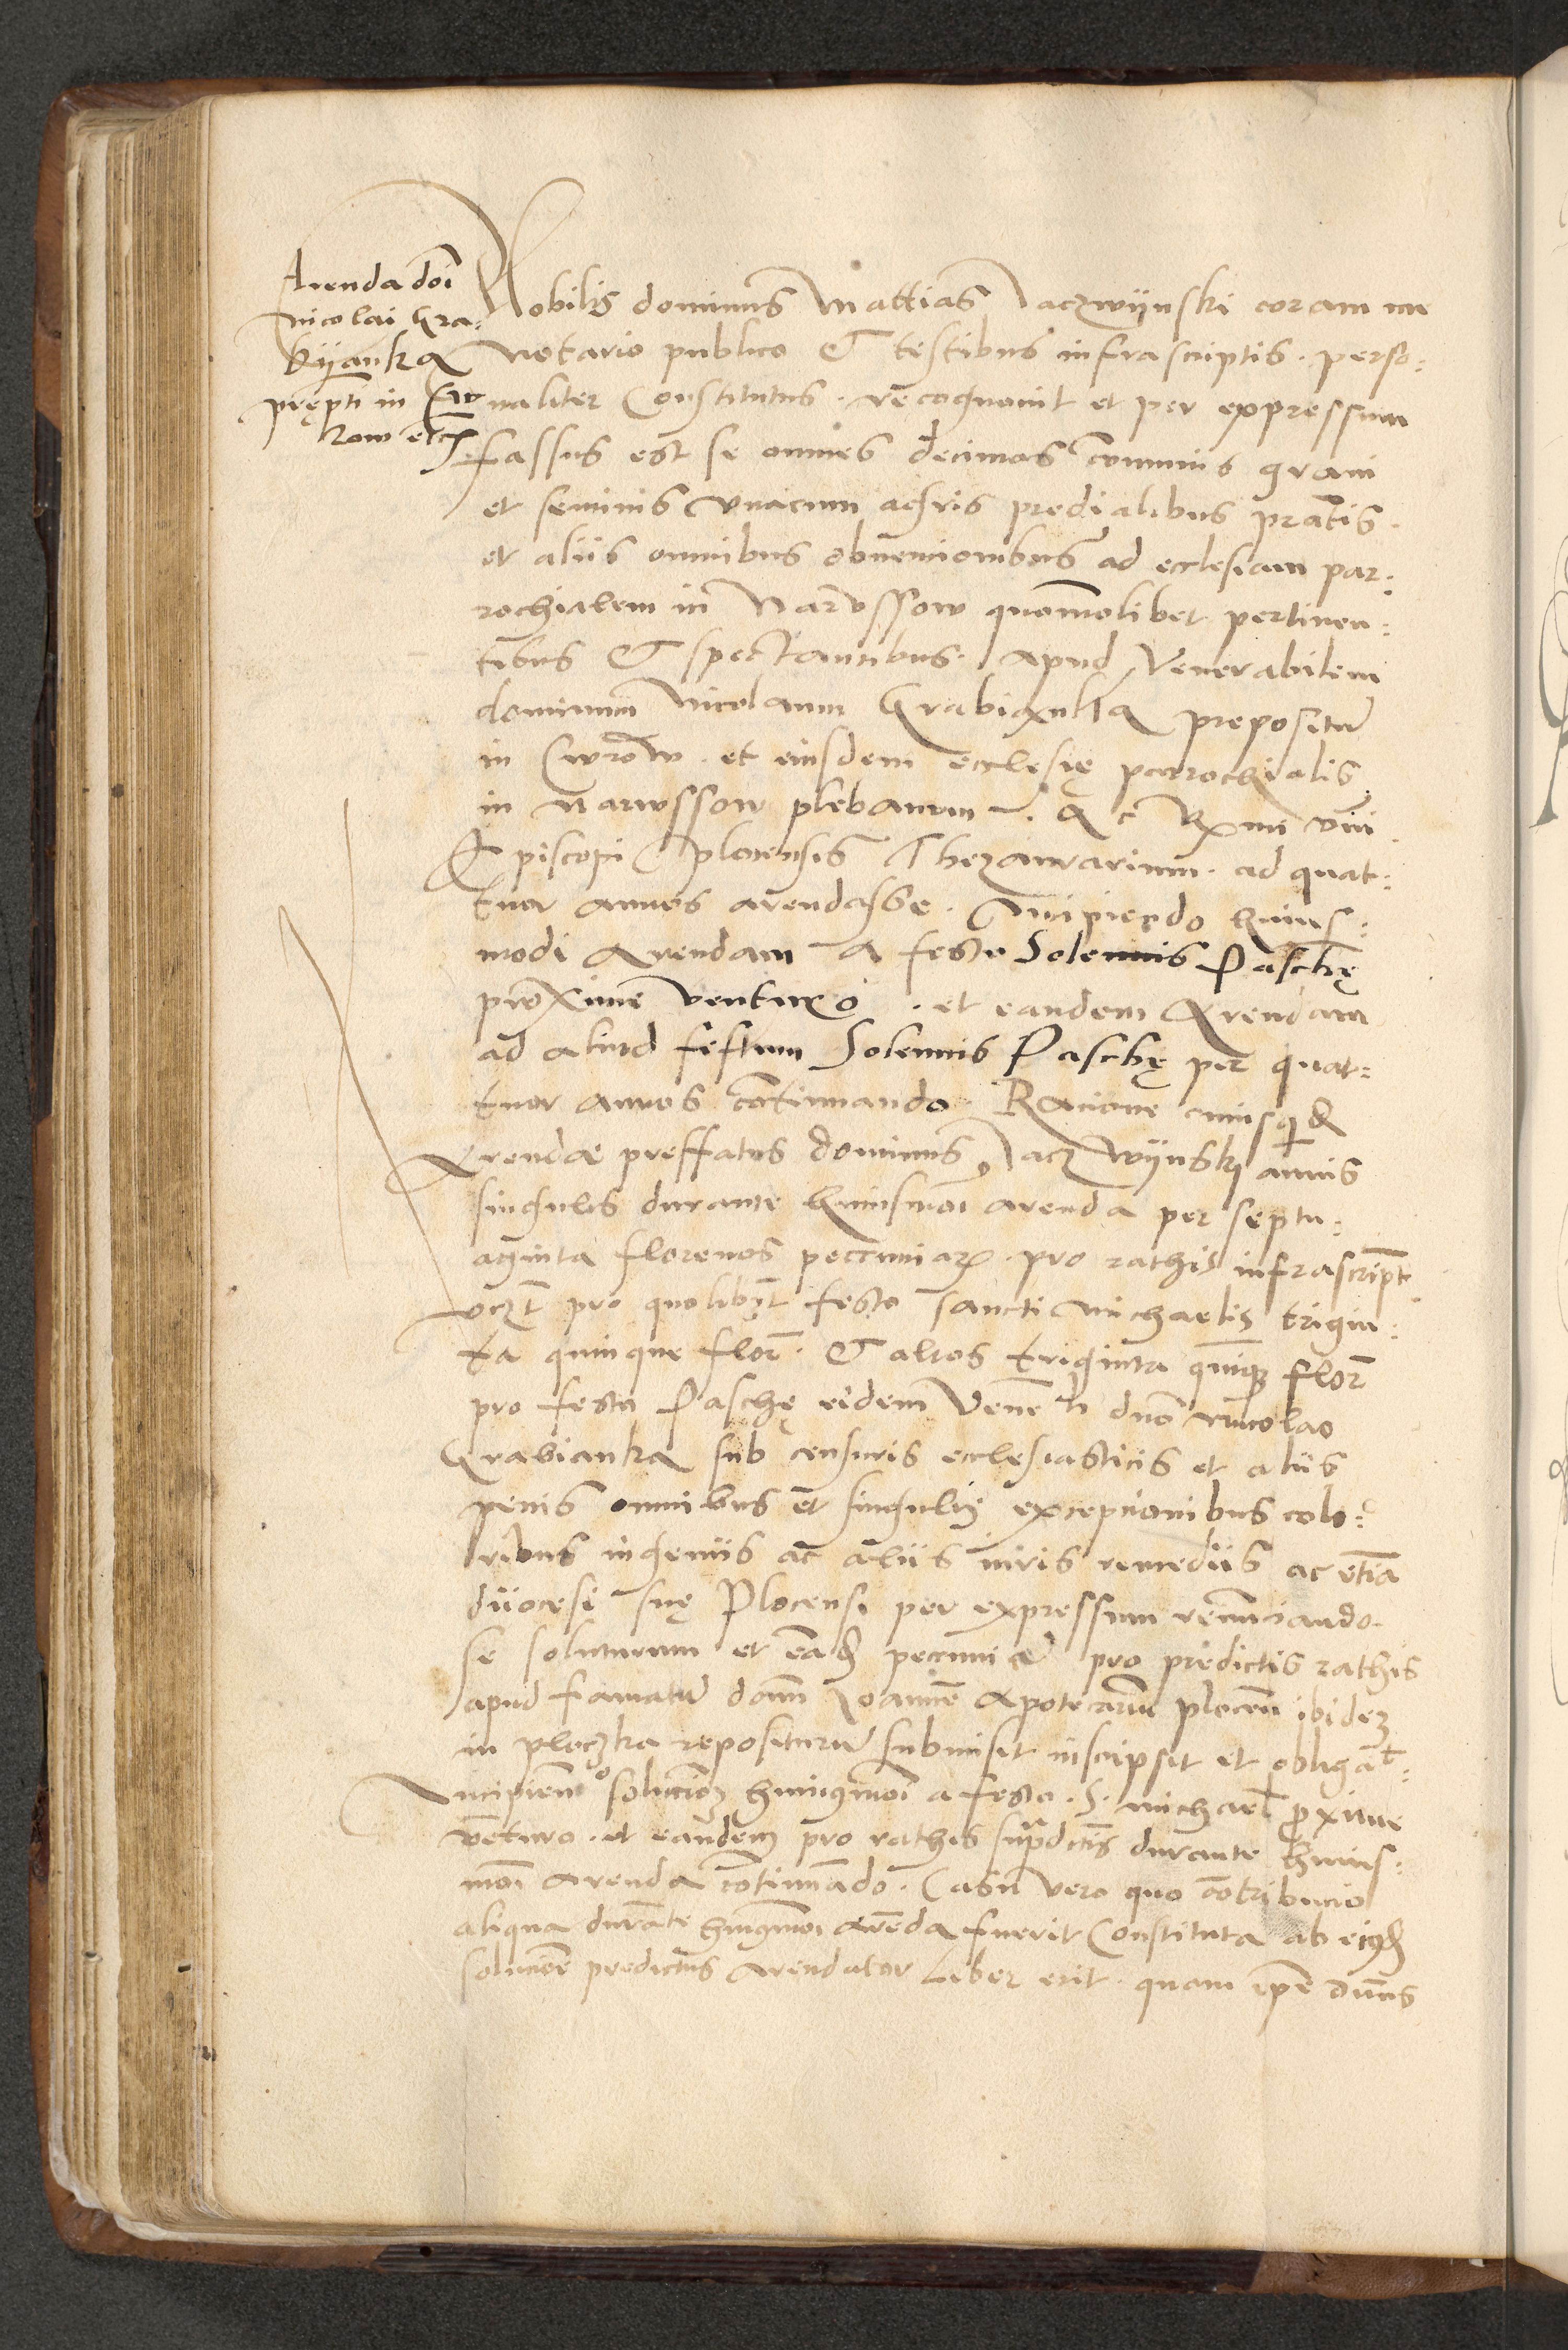 Arenda doi
Nicolai Gra-
byanka
pręptı in Cw
row etc
Nobilis dominus Mattias Jaczwijnski coram me
Notario publico Et testibus infrascriptis. perso:
naliter Constitutus. recognovit et per expressum
fassus est se omnes decimas Communis grani
et seminis Vnacum agris predialibus pratis.
et aliis omnibus obvencionibus ad ecclesiam par:
rochialem in Narvssow quomolibet pertinen:
tibus Et spectantibus. apud Venerabilem
dominum Nicolaum Grabianka prepositu
in Cwrow. et eiusdem ecclesię parrochialis
in Narwssow plebanum. Ac Rmi dni
Episcopi plocensis Thezaurarium. ad quat:
tuor annos arendasse. Incipiendo huius:
modi Arendam A festo Solennis Paschę
proxime venturo. et eandem Arendam
ad aliud festum Solennis Paschę per quat:
tuor annos Continuando. Racione cuiusquid
Arendae preffatus dominus Jaczwijnski annis
singulis durante huiusmoi arenda per septu:
aginta florenos peccuniar. pro rathis infrascript.
vczt pro quolibet festo sancti Michaelis trigin:
ta quinque flor. Et alios triginta quinq flor
pro festo Paschę eidem Vene li dno Nicolao
Grabianka sub censuris ecclesiasticis et aliis
penis omnibus et singulis excepcionibus colo:
ribus ingeniis ac aliis iuris remediis ac etia
diiocesi suę Plocensi per expressum renunciando.
se soluturum et ead peccunia pro predictis rathis
apud famatu domi Joanne Apotecariu plocen ibidez
in ploczka repositurum submisit inscripsit et obligat:
Incipiendo solucioz huiusmoi a festo. S. Michael proxime
venturo. et eandem pro rathis supradictis durante huius:
moi arenda Continuado. Casu vero quo Contribucio
aliqua durate huiusmoi Areda fuerit Constituta ab eiusd
solucioe predictus Arendator Liber erit. quam ipse dnus